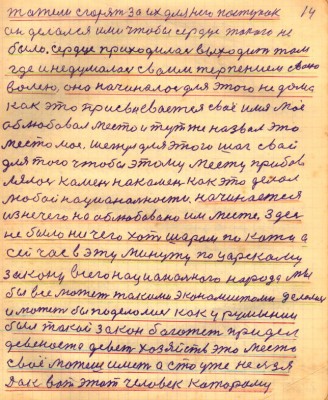 14
он делался или чтобы сердце такого не
было, сердце приходилас выходит там
где и недумалос своим терпением свою
волею, оно начиналос для этого не дома
как это присвысвается своё имя Моё
облюбовал место и тут же назвал это
место моё, шёл для этого шаг свой
для того чтобы этому месту прибов
лялос камен накамен как это делал
любой национальности. начинается
изнечего но облюбовано им место. Здес
не было ни чего хот шаром по кати а
сей час в эту минуту по царскому
закону всего национального народа мы
бы все может такими экономистами делалис
и может бы поделилис как у румынии
был такой закон богател придел
девеносто девет хозяйств это место
своё может имет а сто уже не лзя
Так вот этот человек каторому